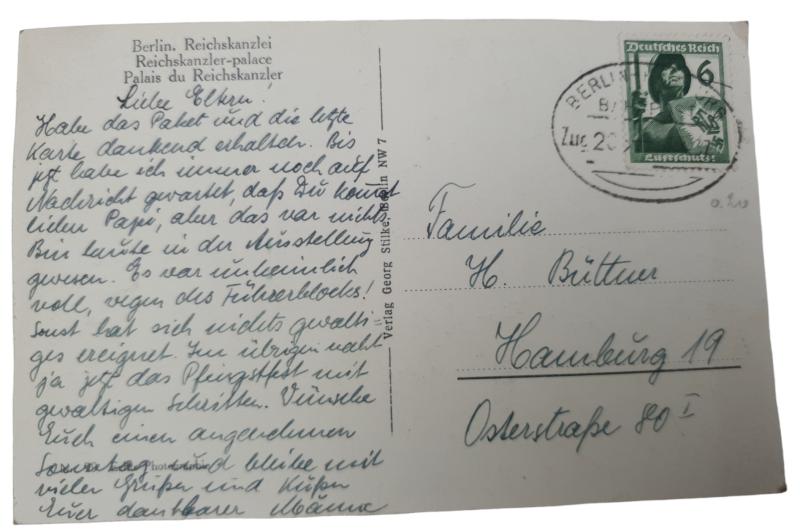 Berlin. Reichskanzlei
Reichskanzler-palace
Palais du Reichskanzler
Liebe Eltern!
Habe das Paket und die letzte
Karte dankend erhalten. Bis
jetzt habe ich immer noch auf
Nachricht gewartet, daß Du kommst
lieber Papi, aber das war nichts.
Bin heute in der Ausstellung
gewesen. Es war unheimlich
voll, wegen des Führerblocks!
Sonst hat sich nichts gewalti-
ges ereignet. Im übrigen naht
ja jetzt das Pfingstfest mit
gewaltigen Schritten. Wünsche
Euch einen angenehmen
Sonntag und bleibe mit
vielen Grüßen und Küßen
Euer dankbarer
Verlag Georg Stilke, Berlin NW 7
Deutsches Reich
6
Luftschutz
BERLIN
Zug 20
Familie
H. Büttner
Hamburg 19
Osterstraße 80 I